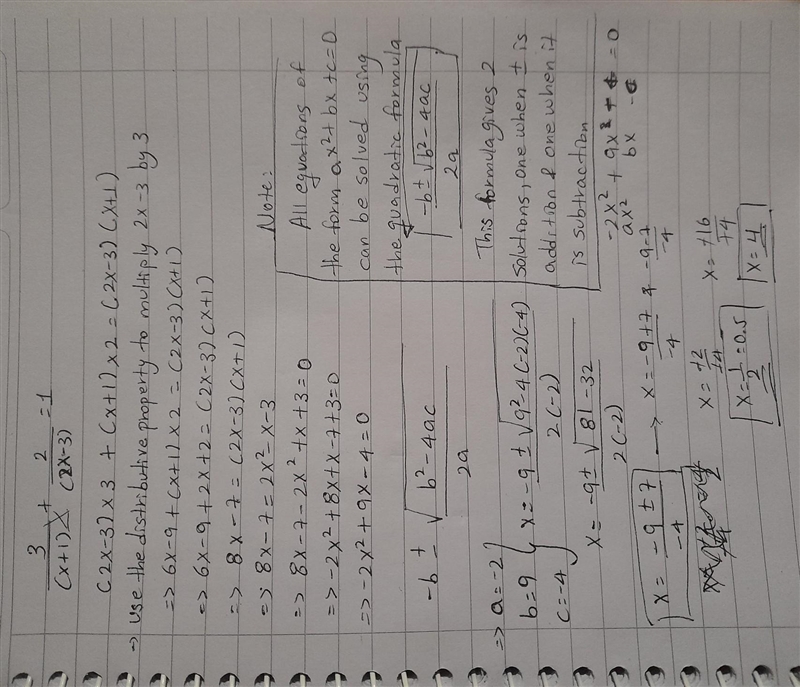 3/(x+1) + 2/(2x-3) = 1
(2x-3)x3 + (x+1)x2 = (2x-3)(x+1)
→ use the distributive property to multiply 2x-3 by 3
=> 6x-9+(x+1)x2 = (2x-3)(x+1)
=> 6x-9+2x+2 = (2x-3)(x+1)
=> 8x-7 = (2x-3)(x+1)
=> 8x-7 = 2x²-x-3
=> 8x-7-2x²+x+3=0
=> -2x²+8x+x-7+3=0
=> -2x²+9x-4=0
-b ± √b²-4ac / 2a
=> a=-2
b=9
c=-4
x= -9 ± √9²-4(-2)(-4) / 2(-2)
x= -9 ± √81-32 / 2(-2)
x = -9 ± 7 / -4
→ x= -9+7 / -4 & -9-7 / -4
x= +2/+4 x= +16/+4
x= 1/2 = 0.5 x= 4
Note:
All equations of
the form ax²+bx+c=0
can be solved using
the quadratic formula
-b ± √b²-4ac / 2a
This formula gives 2
solutions, one when ± is
addition & one when it
is subtraction
-2x² + 9x = 0
ax² bx